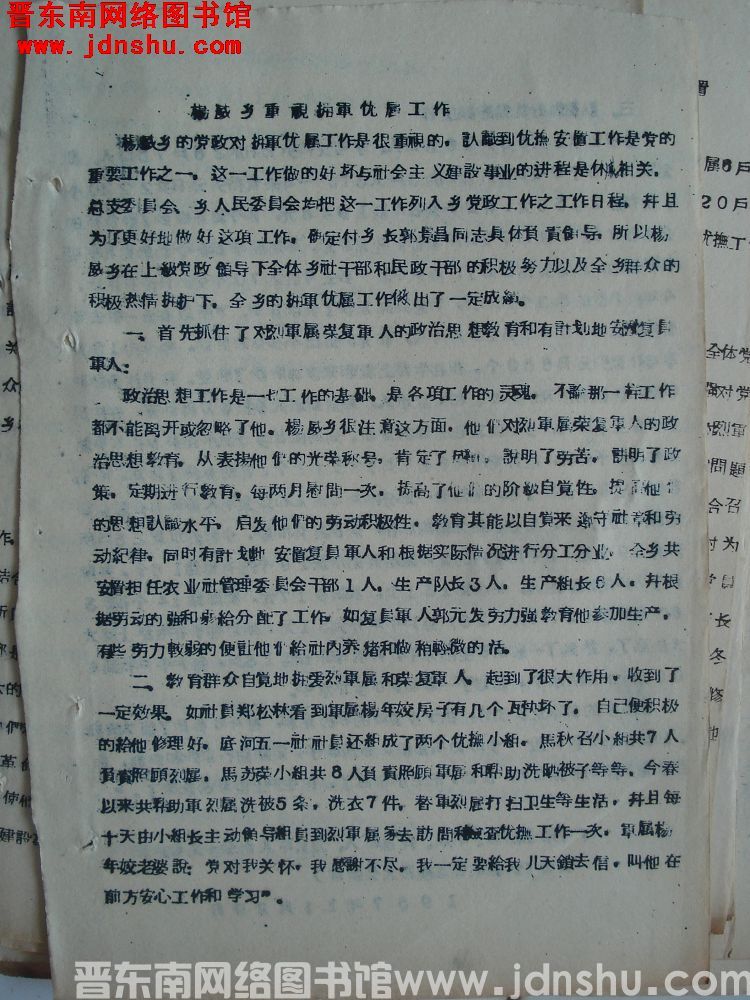 晋东南网络图书馆
www.jdnshu.com
楊威乡重視拥軍优属工作
楊威乡的党政对拥軍优属工作是很重視的。認識到优撫安置工作是党的
重要工作之一。这一工作做的好坏与社会主义建設事业的进程是休戚相关。
总支委員会、乡人民委員会均把这一工作列入乡党政工作之工作日程。并且
为了更好地做好这項工作。确定付乡长郭 昌同志具体負責領导。所以楊
威乡在上級党政領导下全体乡社干部和民政干部的积极努力以及全乡群众的
积极热情拥护下。全乡的拥軍优属工作做出了一定成績。
一、首先抓住了对烈軍属荣复軍人的政治思想教育和有計划地安置复員
軍人：
政治思想工作是一切工作的基础。是各項工作的灵魂。不論那一样工作
都不能离开或忽略了他。楊威乡很注意这方面。他們对烈軍属荣复軍人的政
治思想教育。从表揚他們的光荣称号，肯定了成績。說明了劳苦。講明了政
策。定期进行教育。每两月慰問一次。提高了他們的阶級自覚性。提高他們
的思想認識水平。启发他們的劳动积极性。教育其能以自覚来遵守社章和劳
动紀律。同时有計划地安置复員軍人和根据实际情况进行分工分业。全乡共
安置担任农业社管理委員会干部1人。生产队长3人。生产組长6人。并根
据劳动的強和弱給分配了工作。如复員軍人郭元发劳力強教育他参加生产。
有些劳力較弱的便让他們給社内养猪和做稍輕微的活。
二、教育群众自覚地拥爱烈軍属和荣复軍人。起到了很大作用。收到了
一定效果。如社員郑松林看到軍属楊年姣房子有几个瓦快坏了。自己便积极
的給他修理好。底河五一社社員还組成了两个优撫小組。馬秋召小組共7人
負責照顧烈属。馬苏荣小組共8人負責照顧軍属和帮助洗 被子等等。今春
以来共帮助軍烈属洗被5条。洗衣7件。替軍烈属打扫卫生等生活。并且每
十天由小組长主动領导組員到烈軍属家去訪問和检查优撫工作一次。軍属楊
年姣老婆說：党对我关怀。我感謝不尽。我一定要給我儿天鎖去信。叫他在
前方安心工作和学习”。
晋东南网络图书馆 www.jdnshu.com